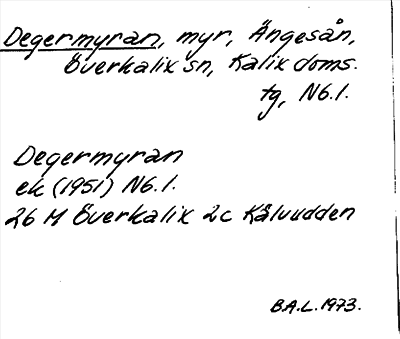 Degermyran, myr, Ängesån,
Överkalix sn, Kalix doms.
tg, N6.1.
Degermyran
ek (1951) N6.1.
26 M Överkalix 2c Kåluudden
B.A.L. 1973.